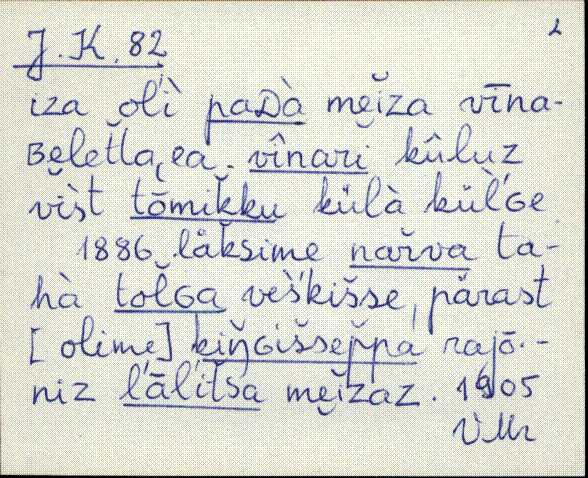 2
J.K. 82
iza olì paDà mĕĭza vīna-
Beletta, ea. vînari kûluz
vìst tōmikku külà kül'Ge
1886 låksime narva ta-
hà tolGa veškišse, pärast
[olime] kiŋGišseppa rajō-
niz l'ālitsa mĕĭzaz. 1905
VMr